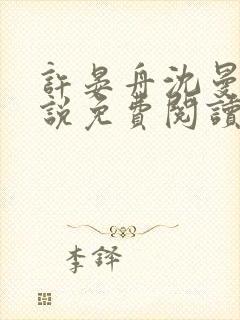 許晏舟沈曼
說免費閱讀
李鐸